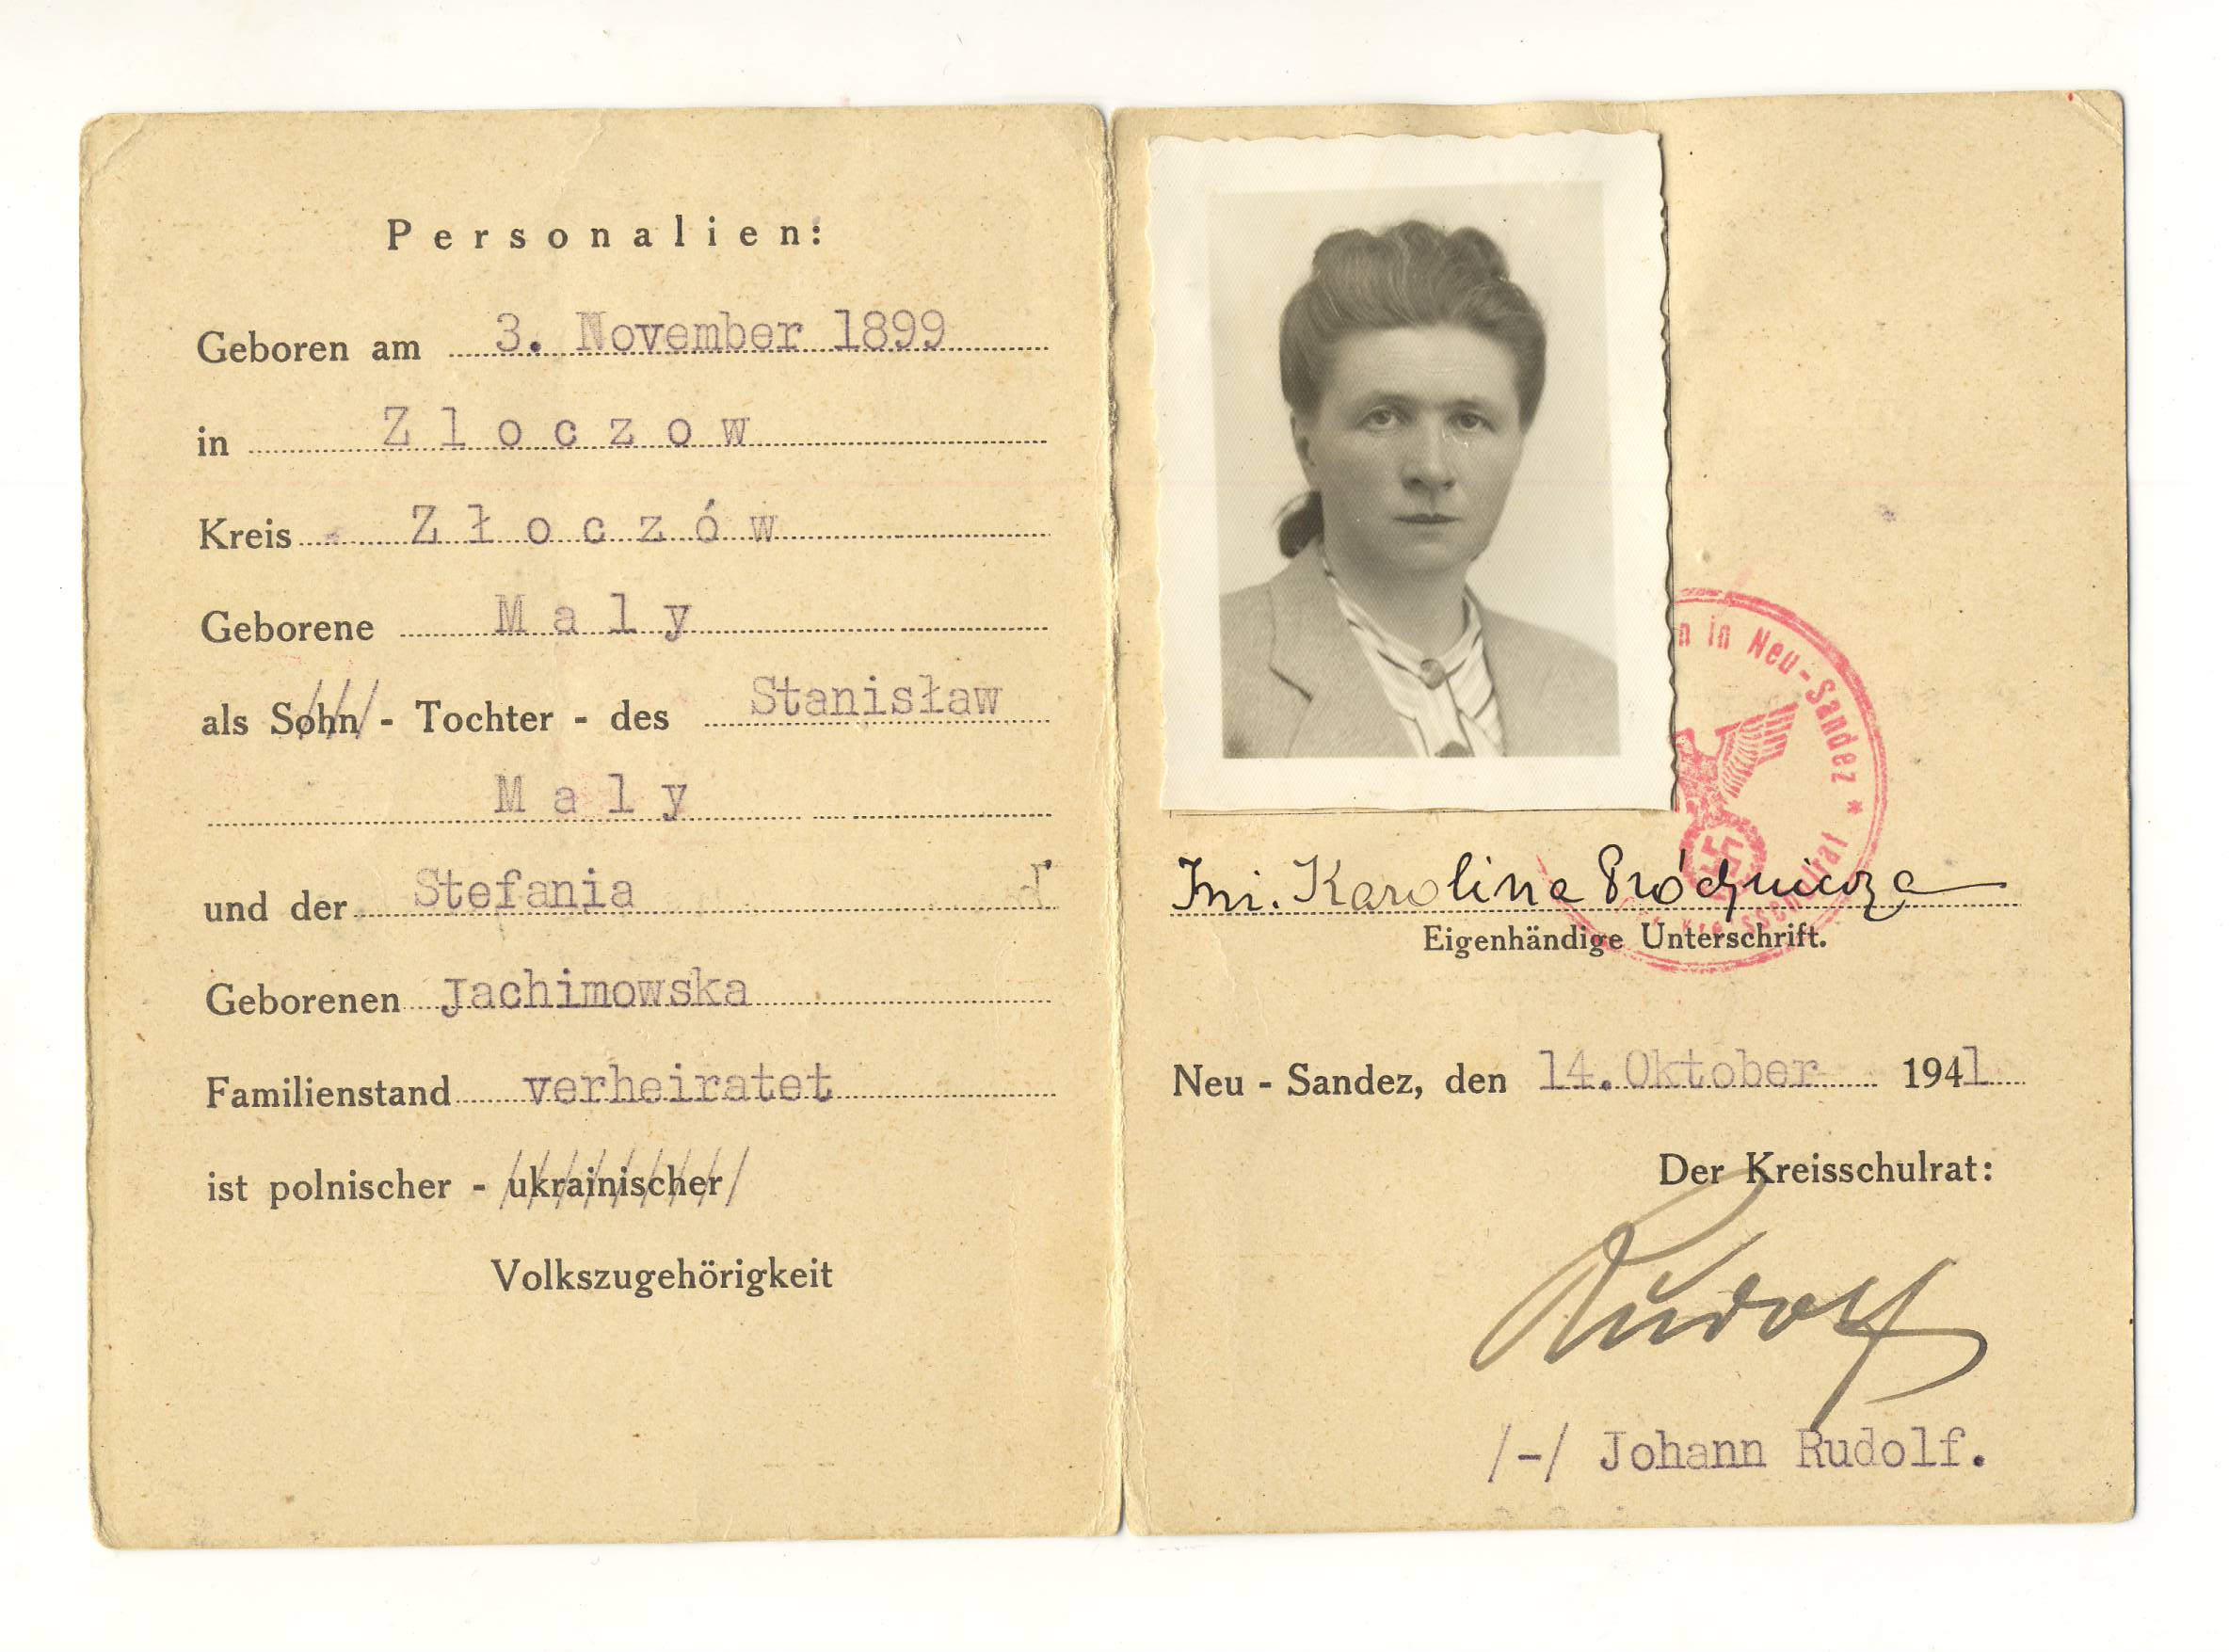 Personalien:
Geboren am 3. November 1899
in Zloczow
Kreis Złoczów
Geborene Maly
als Sohn/ - Tochter - des Stanisław
Maly
und der Stefania
Geborenen Jachimowska
Familienstand verheiratet
ist polnischer - ukrainischer/
Volkszugehörigkeit
n in Neu-Sandez * Kreisschulrat
Karolina
Eigenhändige Unterschrift.
Neu - Sandez, den 14. Oktober 1941
Der Kreisschulrat:
Rudolf
/-/ Johann Rudolf.